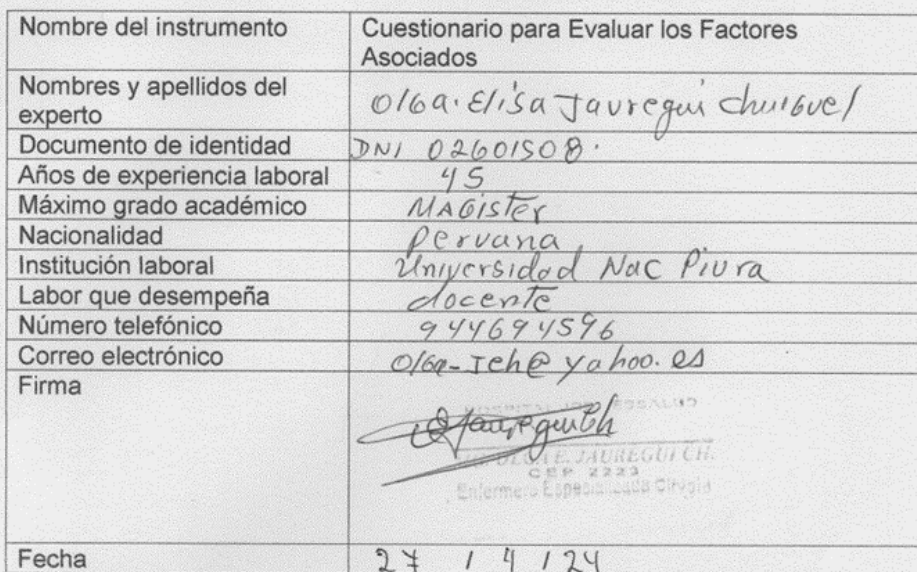 Nombre del instrumento
Cuestionario para Evaluar los Factores
Asociados
Nombres y apellidos del
experto
Olga. Elisa Jauregui
Documento de identidad
DNI 02601508.
Años de experiencia laboral
45
Máximo grado académico
MAGister
Nacionalidad
peruana
Institución laboral
Universidad Nac Piura
Labor que desempeña
docente
Número telefónico
944694596
Correo electrónico
Olga-Jch@yahoo.es
Firma
OJaureguiCh
OLGA E. JAUREGUI CH.
CEP 2223
Enfermera Especializada Cirugía
Fecha
27 / 4 / 24